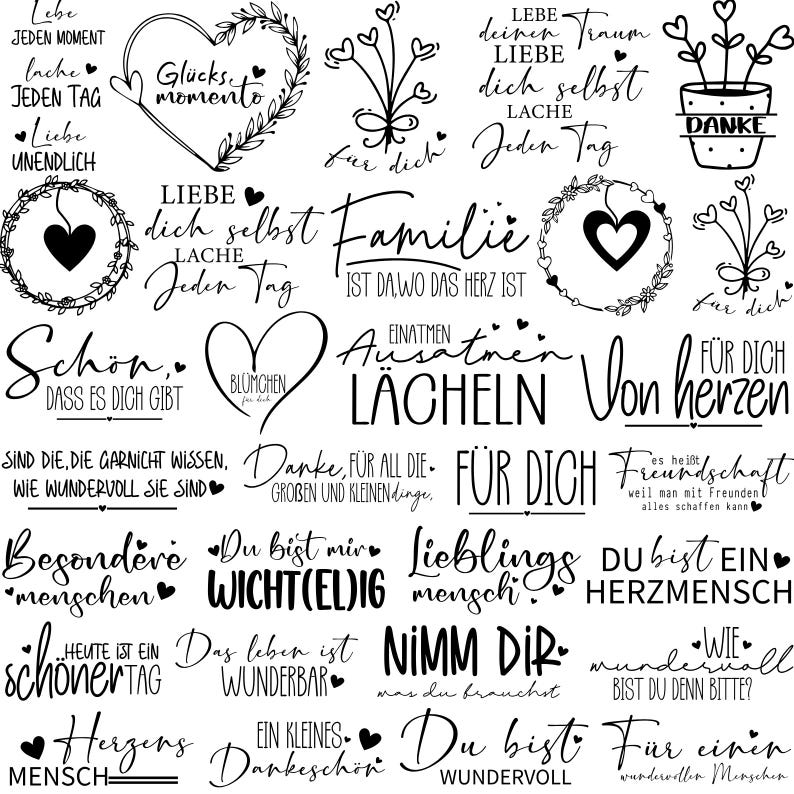 Lebe
JEDEN MOMENT
lache
JEDEN TAG
Liebe
UNENDLICH
Glücks
momento
für dich
LEBE
deinen Traum
LIEBE
dich selbst
LACHE
Jeden Tag
DANKE
LIEBE
dich selbst
LACHE
Jeden Tag
Familie
IST DA,WO DAS HERZ IST
für dich
Schön,
DASS ES DICH GIBT
BLÜMCHEN
für dich
EINATMEN
Ausatmen
LÄCHELN
FÜR DICH
Von herzen
SIND DIE, DIE GARNICHT WISSEN,
WIE WUNDERVOLL SIE SIND
Danke, FÜR ALL DIE
GROßEN UND KLEINEN dinge,
FÜR DICH
es heißt
Freundschaft
weil man mit Freunden
alles schaffen kann
Besondere
menschen
Du bist mir
WICHT(EL)IG
Lieblings
mensch
DU bist EIN
HERZMENSCH
HEUTE IST EIN
schöner TAG
Das leben ist
WUNDERBAR
NIMM DIR
was du brauchst
WIE
wundervoll
BIST DU DENN BITTE?
Herzens
MENSCH
EIN KLEINES
Dankeschön
Du bist
WUNDERVOLL
Für einen
wundervollen Menschen